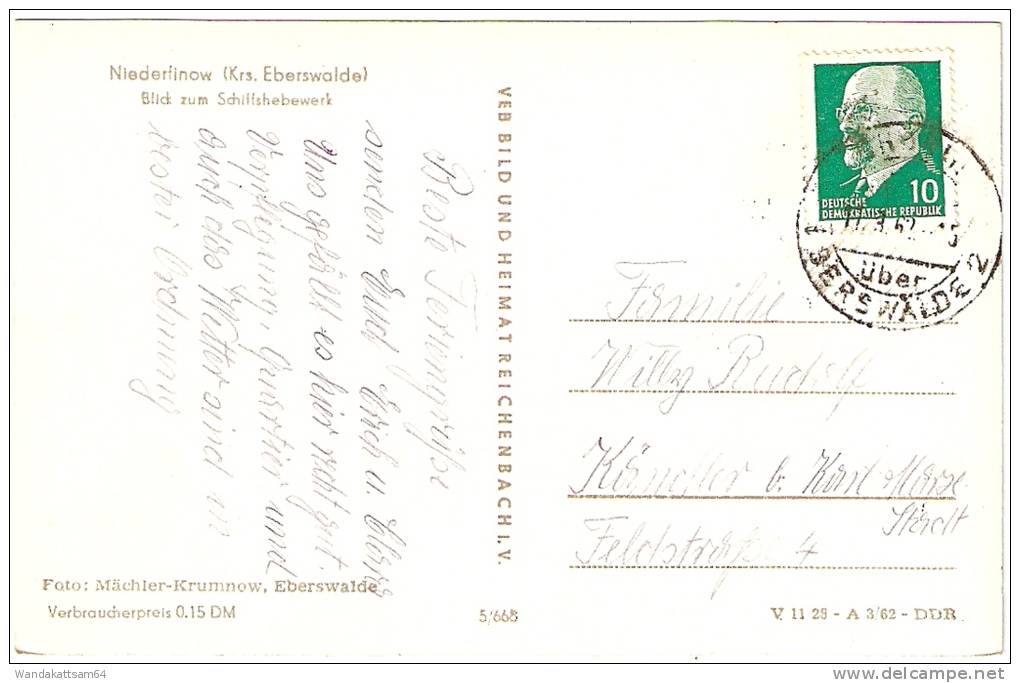 Niederfinow (Krs. Eberswalde)
Blick zum Schiffshebewerk
Beste Feriengrüße
senden Euch Erich u. 
Uns gefällt es hier recht gut.
Verpflegung, Quartier und
auch das Wetter sind in
bester Ordnung
VEB BILD UND HEIMAT REICHENBACH I. V.
DEUTSCHE
DEMOKRATISCHE REPUBLIK
10
über
EBERSWALDE 2
Familie
Willy Rudolf
Kändler b. Karl-Marx-
Stadt
Feldstraße 4
Foto: Mächler-Krumnow, Eberswalde
Verbraucherpreis 0.15 DM
5/668
V 11 28 - A 3/62 - DDR
Wandakattsam64
delcampe.net